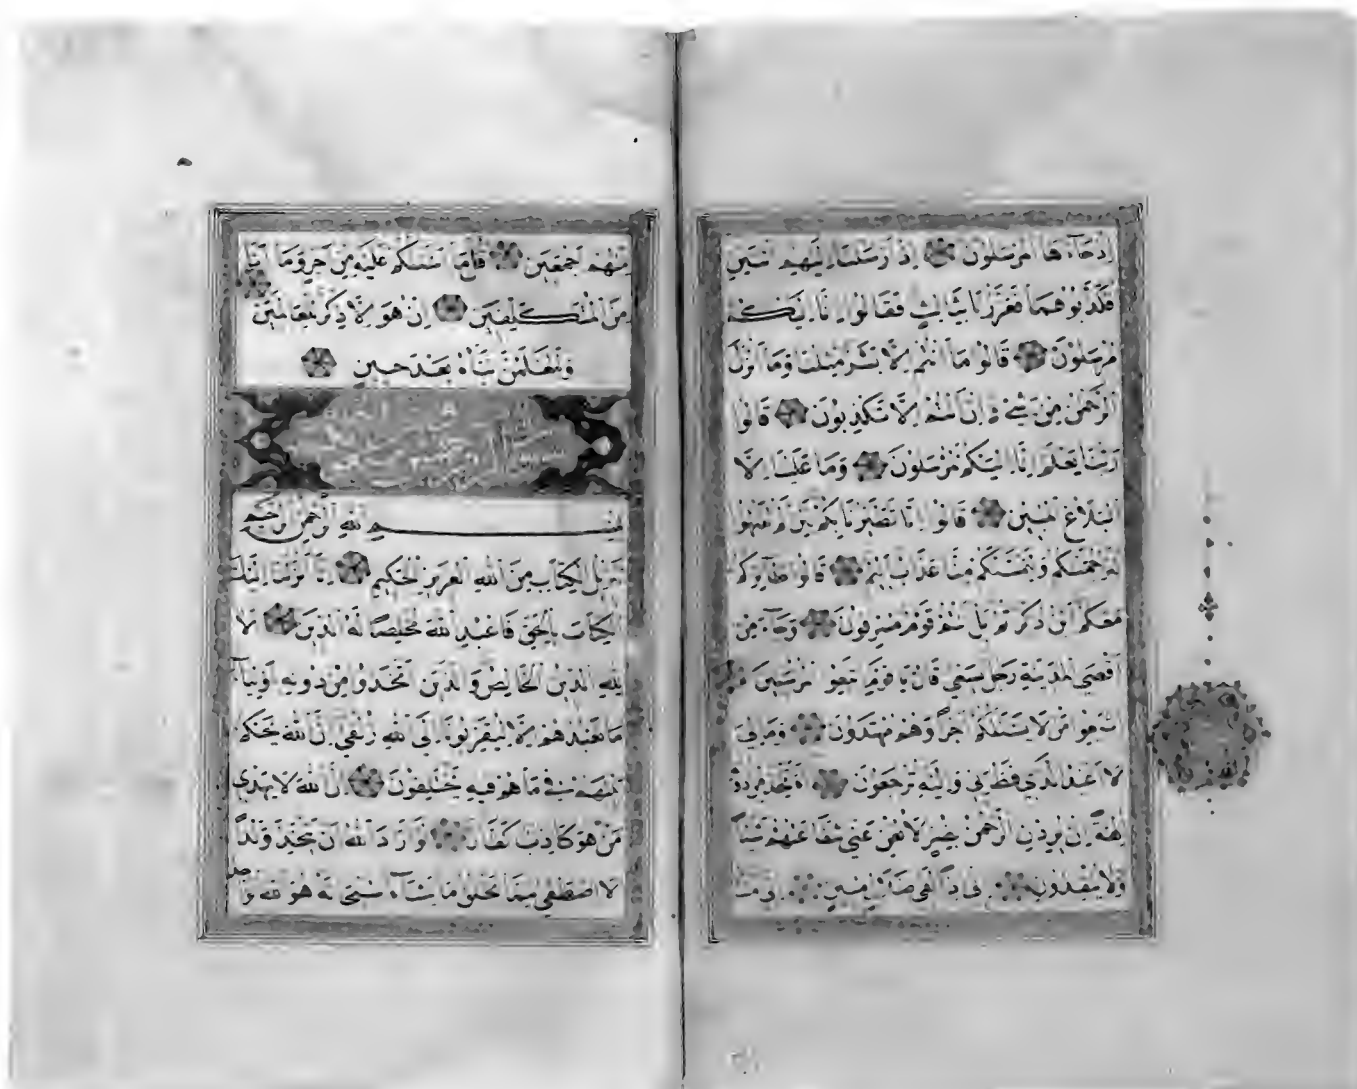 اذ جاءها المرسلون اذ ارسلنا اليهم اثنين
فكذبوهما فعززنا بثالث فقالوا انا اليكم
مرسلون قالوا ما انتم الا بشر مثلنا وما انزل
الرحمن من شئ ان انتم الا تكذبون قالوا
ربنا يعلم انا اليكم لمرسلون وما علينا الا
البلاغ المبين قالوا انا تطيرنا بكم لئن لم تنتهوا
لنرجمنكم وليمسنكم منا عذاب اليم قالوا طائركم
معكم ائن ذكرتم بل انتم قوم مسرفون وجاء من
اقصى المدينة رجل يسعى قال يا قوم اتبعوا المرسلين
اتبعوا من لا يسئلكم اجرا وهم مهتدون ومالى
لا اعبد الذى فطرنى واليه ترجعون ءاتخذ من دونه
الهة ان يردن الرحمن بضر لا تغن عنى شفاعتهم شيئا
ولا ينقذون انى اذا لفى ضلال مبين انى امنت
منهم اجمعين قل ما اسئلكم عليه من اجر وما انا
من المتكلفين ان هو الا ذكر للعالمين
ولتعلمن نباه بعد حين
بسم الله الرحمن الرحيم
تنزيل الكتاب من الله العزيز الحكيم انا انزلنا اليك
الكتاب بالحق فاعبد الله مخلصا له الدين الا
لله الدين الخالص والذين اتخذوا من دونه اولياء
ما نعبدهم الا ليقربونا الى الله زلفى ان الله يحكم
بينهم فى ما هم فيه يختلفون ان الله لا يهدى
من هو كاذب كفار لو اراد الله ان يتخذ ولدا
لاصطفى مما يخلق ما يشاء سبحانه هو الله الوا